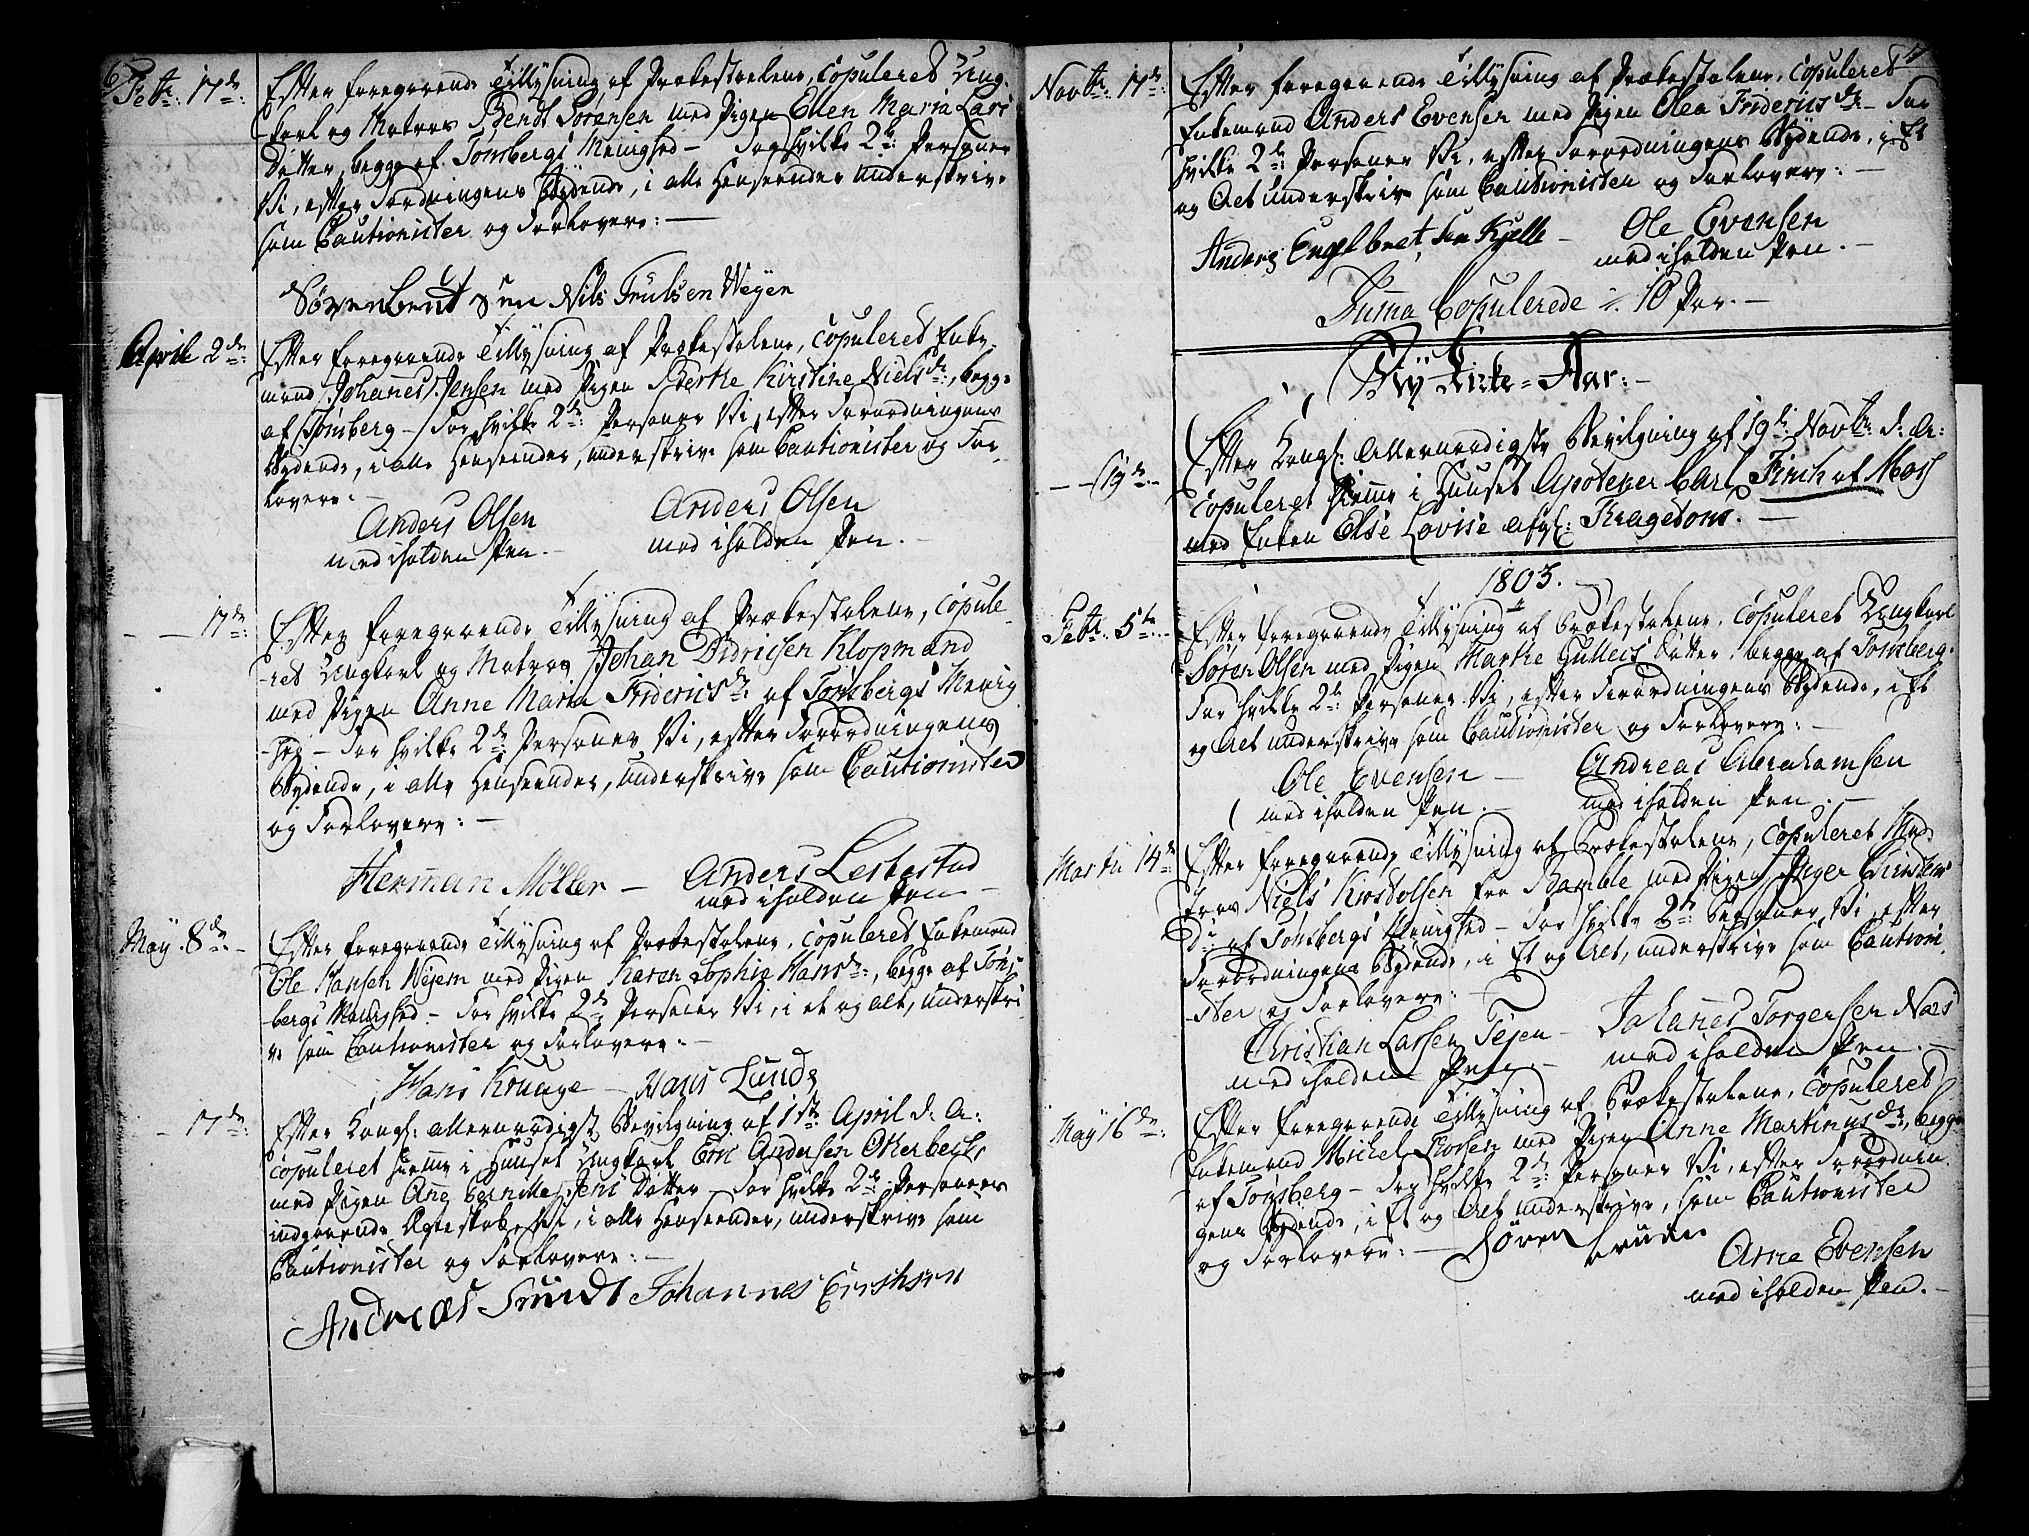 6.
Febr: 17de:
Efter foregaaende Tillysning af Prækestolene, Copuleret Ung-
karl og Matros Bendt Sørensen med Pigen Ellen Maria Lars
Datter, begge af Tønsbergs Menighed – For hvilke 2de Personer
Vi, efter Forordningens Bydende, i alle Henseender underskrive
som Cautionister og Forlovere: —
Søren Bentsen Nils Trulsen Weyen
April 2de:
Efter foregaaende Tillysning af Prækestolene, Copuleret Enke-
mand Johannes Jensen med Pigen Berthe Kirstine Nielsdr:, begge
af Tønsberg – For hvilke 2de Personer Vi, efter Forordningens
Bydende, i alle Henseender, underskrive som Cautionister og For-
lovere: —
Anders Olsen Anders Olsen
med iholden Pen. — med iholden Pen. —
— — 17de:
Efter foregaaende Tillysning af Prækestolene, Copule-
ret Ungkarl og Matros Johan Didrichsen Klopmand
med Pigen Anne Maria Fridericsdr: af Tønsbergs Menig-
hed – For hvilke 2de Personer Vi, efter Forordningens
Bydende, i alle Henseender, underskrive som Cautionister
og Forlovere: —
Herman Möller — Anders Lesbestad
med iholden Pen —
May. 8de: —
Efter foregaaende Tillysning af Prækestolene, Copuleret Enkemand
Ole Hansen Wejem med Pigen Karen Sophia Hansdr:, begge af Tøns-
bergs Menighed – For hvilke 2de Personer Vi, i et og alt, underskri-
ve som Cautionister og Forlovere: —
Hans Kruuge — Hans Lunde
— 17de:
Efter Kongl: allernaadigst Bevilgning af 1ste April d: A:
Copuleret hiemme i Huuset Ungkarl Eric Andersen Okerbech,
med Pigen Ane Bernille Jens Datter – For hvilke 2de Personers
indgaaende Ægteskab Vi, i alle Henseender, underskrive som
Cautionister og Forlovere: —
Andreas Smidt Johannes Erichsen
7
Novbr: 17de:
Efter foregaaende Tillysning af Prækestolene, Copuleret
Enkemand Anders Evensen med Pigen Olea Fridericsdr: – For
hvilke 2de Personer Vi, efter Forordningens Bydende, i Et
og Alt underskrive som Cautionister og Forlovere: —
Anders Engelbretsen Kjelle — Ole Evensen
med iholden Pen. —
Suma Copulerede 10 Par. —
Nÿ Kirke-Aar: —
— — 19de: —
Efter Kongl: Allernaadigste Bevilgning af 19de Novbr: d: A:
Copuleret hiemme i Huuset Apoteker Carl Finch af Moss
med Enken Else Lovise afgl: Kragetons. —
1803.
Febr: 5te: —
Efter foregaaende Tillysning af Prækestolene, Copuleret Ungkarl
Søren Olsen med Pigen Marthe Gulleics Datter, begge af Tønsberg.
For hvilke 2de Personer Vi, efter Forordningens Bydende, i Et
og Alt underskrive som Cautionister og Forlovere: —
Ole Evensen — Andreas Abrahamsen
med iholden Pen. — med iholden Pen. —
Martii 14de
Efter foregaaende Tillysning af Prækestolene, Copuleret Mad-
Niels Kiostolsen fra Bamble med Pigen Inger Christens
Dr: af Tønsbergs Menighed – For hvilke 2de Personer, Vi efter
Forordningens Bydende, i Et og Alt, underskrive som Cautioni-
ster og Forlovere: —
Christian Larsen Tejen — Johanes Torgersen Næs
med iholden Pen. — med iholden Pen. —
May 16de:
Efter foregaaende Tillysning af Prækestolene, Copuleret
Enkemand Michel med Pigen Anne Martinusdr:, begge
af Tønsberg – For hvilke 2de Personer Vi, efter Forordnin-
gens Bydende, i Et og Alt underskrive, som Cautionister
og Forlovere: — Søren
Arne Evensen
med iholden Pen. —